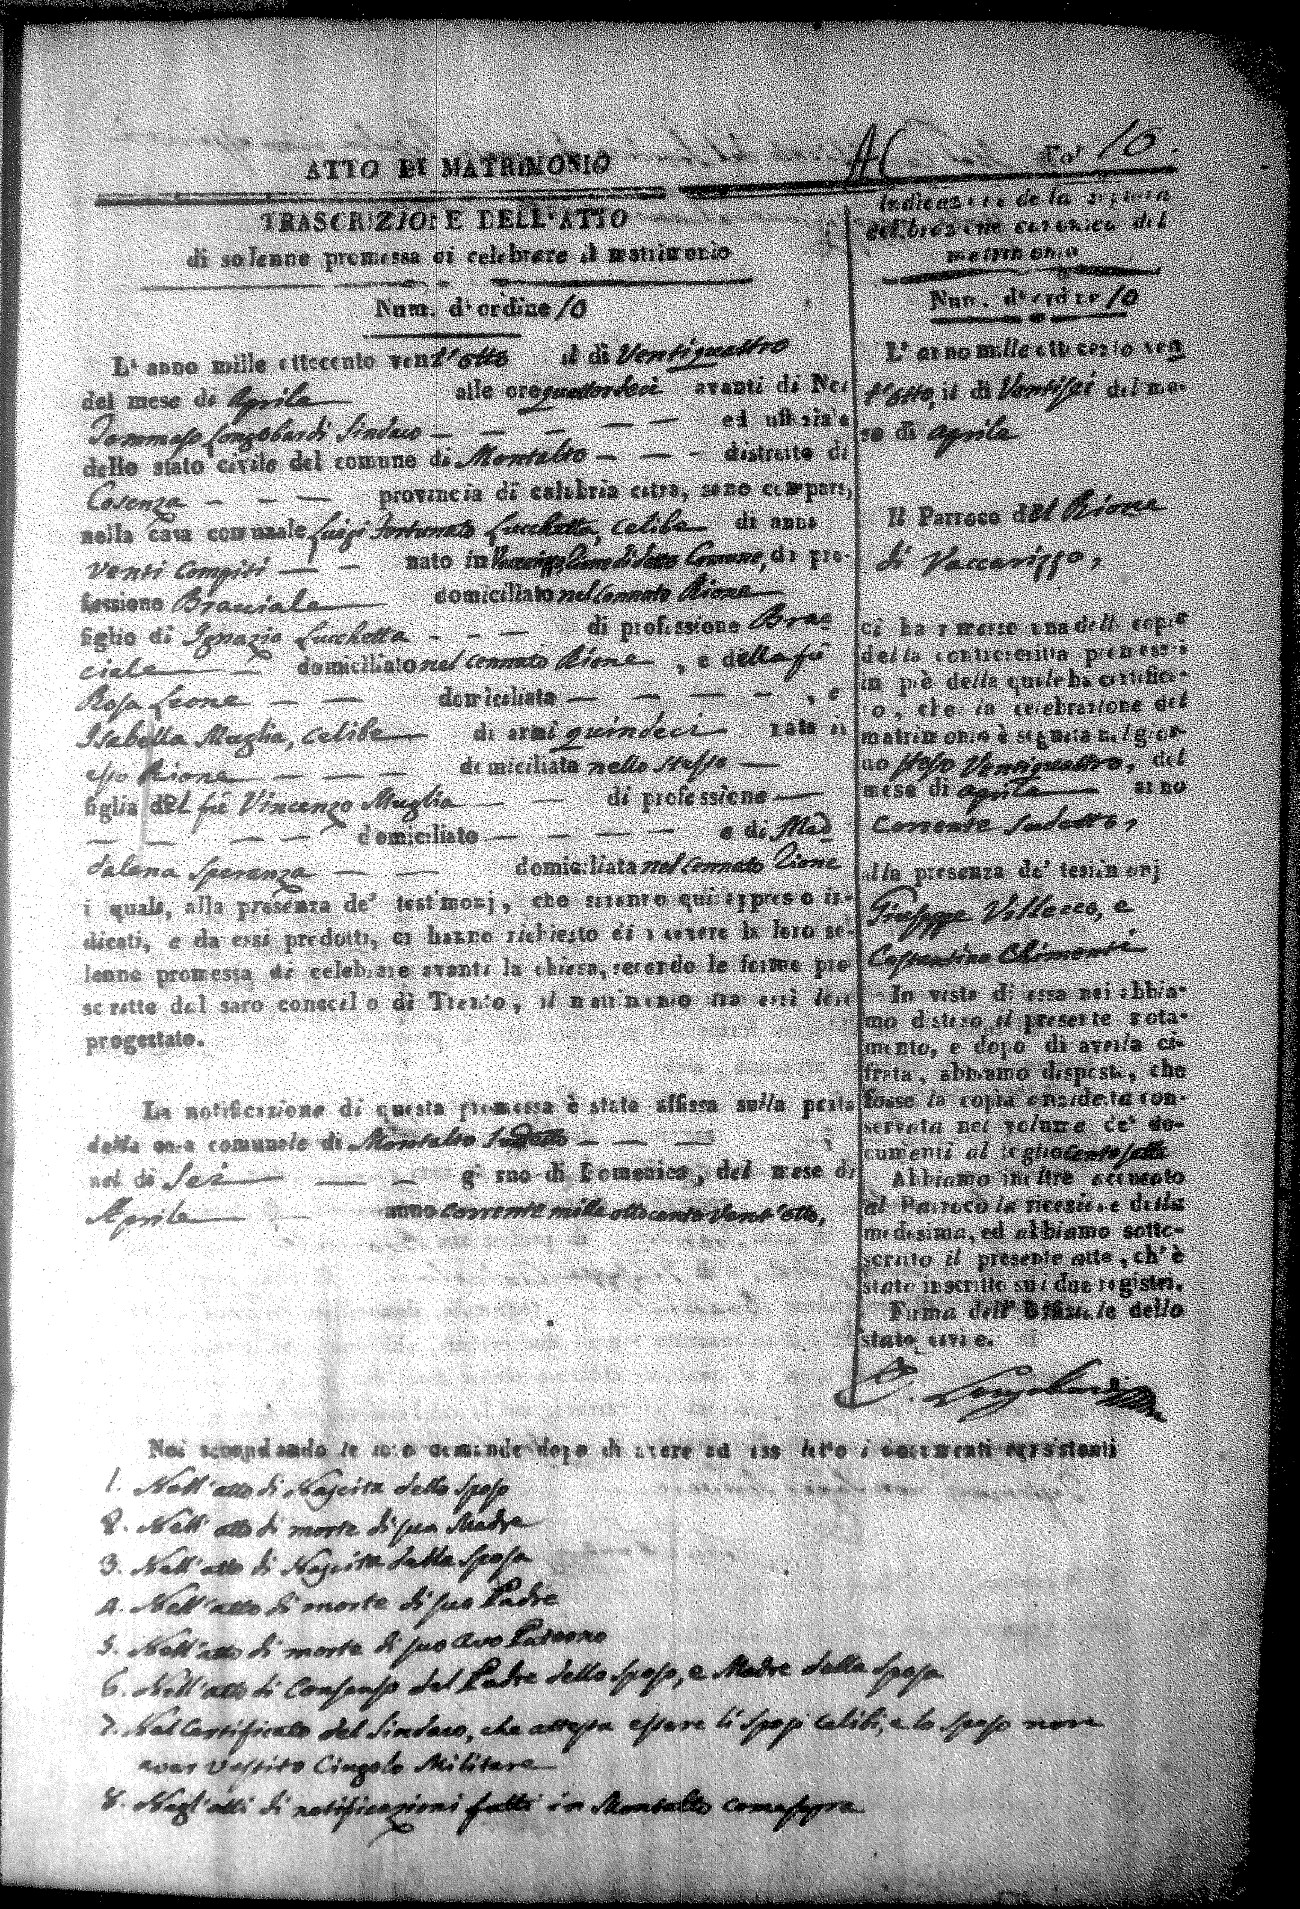 ATTO DI MATRIMONIO
Fol 10.
TRASCRIZIONE DELL'ATTO
di solenne promessa di celebrare il matrimonio
Num. d'ordine 10
L'anno mille ottocento vent'otto il dì Ventiquattro
del mese di Aprile alle ore quattordeci avanti di Noi
Tommaso Longobardi Sindaco ed uffiziale
dello stato civile del comune di Montalto distretto di
Cosenza provincia di calabria citra, sono comparsi,
nella casa comunale Luigi Fortunato Lucchetta, celibe di anni
venti compiti nato in Vaccarizzo Rione di detto Comune, di pro-
fessione Bracciale domiciliato nel cennato Rione
figlio di Ignazio Lucchetta di professione Brac
ciale domiciliato nel cennato Rione, e della fù
Rosa Leone domiciliata , e
Isabella Muglia, celibe di anni quindeci nata in
esso Rione domiciliata nello stesso
figlia del fù Vincenzo Muglia di professione
domiciliato e di Mad
dalena Speranza domiciliata nel cennato Rione
i quali, alla presenza de' testimonj, che saranno qui appresso in-
dicati, e da essi prodotti, ci hanno richiesto di ricevere la loro so-
lenne promessa di celebrare avanti la chiesa, secondo le forme pre
scritte dal sacro concilio di Trento, il matrimonio tra essi loro
progettato.
La notificazione di questa promessa è stata affissa sulla porta
della casa comunale di Montalto sudetto
nel dì Sei giorno di Domenica, del mese di
Aprile anno corrente mille ottocento vent'otto,
Indicazione della seguita
celebrazione canonica del
matrimonio
Num. d'ordine 10
L'anno mille ottocento ven
t'otto, il dì Ventisei del me-
se di Aprile
Il Parroco del Rione
di Vaccarizzo,
ci ha rimesso una delle copie
della controscritta promessa
in piè della quale ha certifica-
to, che la celebrazione del
matrimonio è seguita nel gior-
no stesso Ventiquattro, del
mese di aprile anno
corrente sudetto,
alla presenza de' testimonj
Giuseppe Villecco, e
Costantino Chimenti
In vista di essa noi abbia-
mo disteso il presente nota-
mento, e dopo di averla ci-
frata, abbiamo disposto, che
fosse la copia anzidetta con-
servata nel volume de' do-
cumenti al foglio cento sette
Abbiamo inoltre accusato
al Parroco la ricezione della
medesima, ed abbiamo sotto-
scritto il presente atto, ch'è
stato inscritto sui due registri.
Firma dell'Uffiziale dello
stato civile.
T. Longobardi
Noi secondando le loro domande dopo di avere ad essi letto i documenti consistenti
1. Nell'atto di Nascita dello sposo
2. Nell'atto di morte di sua Madre
3. Nell'atto di Nascita della sposa
4. Nell'atto di morte di suo Padre
5. Nell'atto di morte di suo avo Paterno
6. Nell'atto di Consenso del Padre dello sposo, e Madre della sposa
7. Nel Certificato del Sindaco, che attesta essere li sposi celibi, e lo sposo non
aver vestito Cingolo Militare
8. Negl'atti di notificazioni fatti in Montalto come sopra